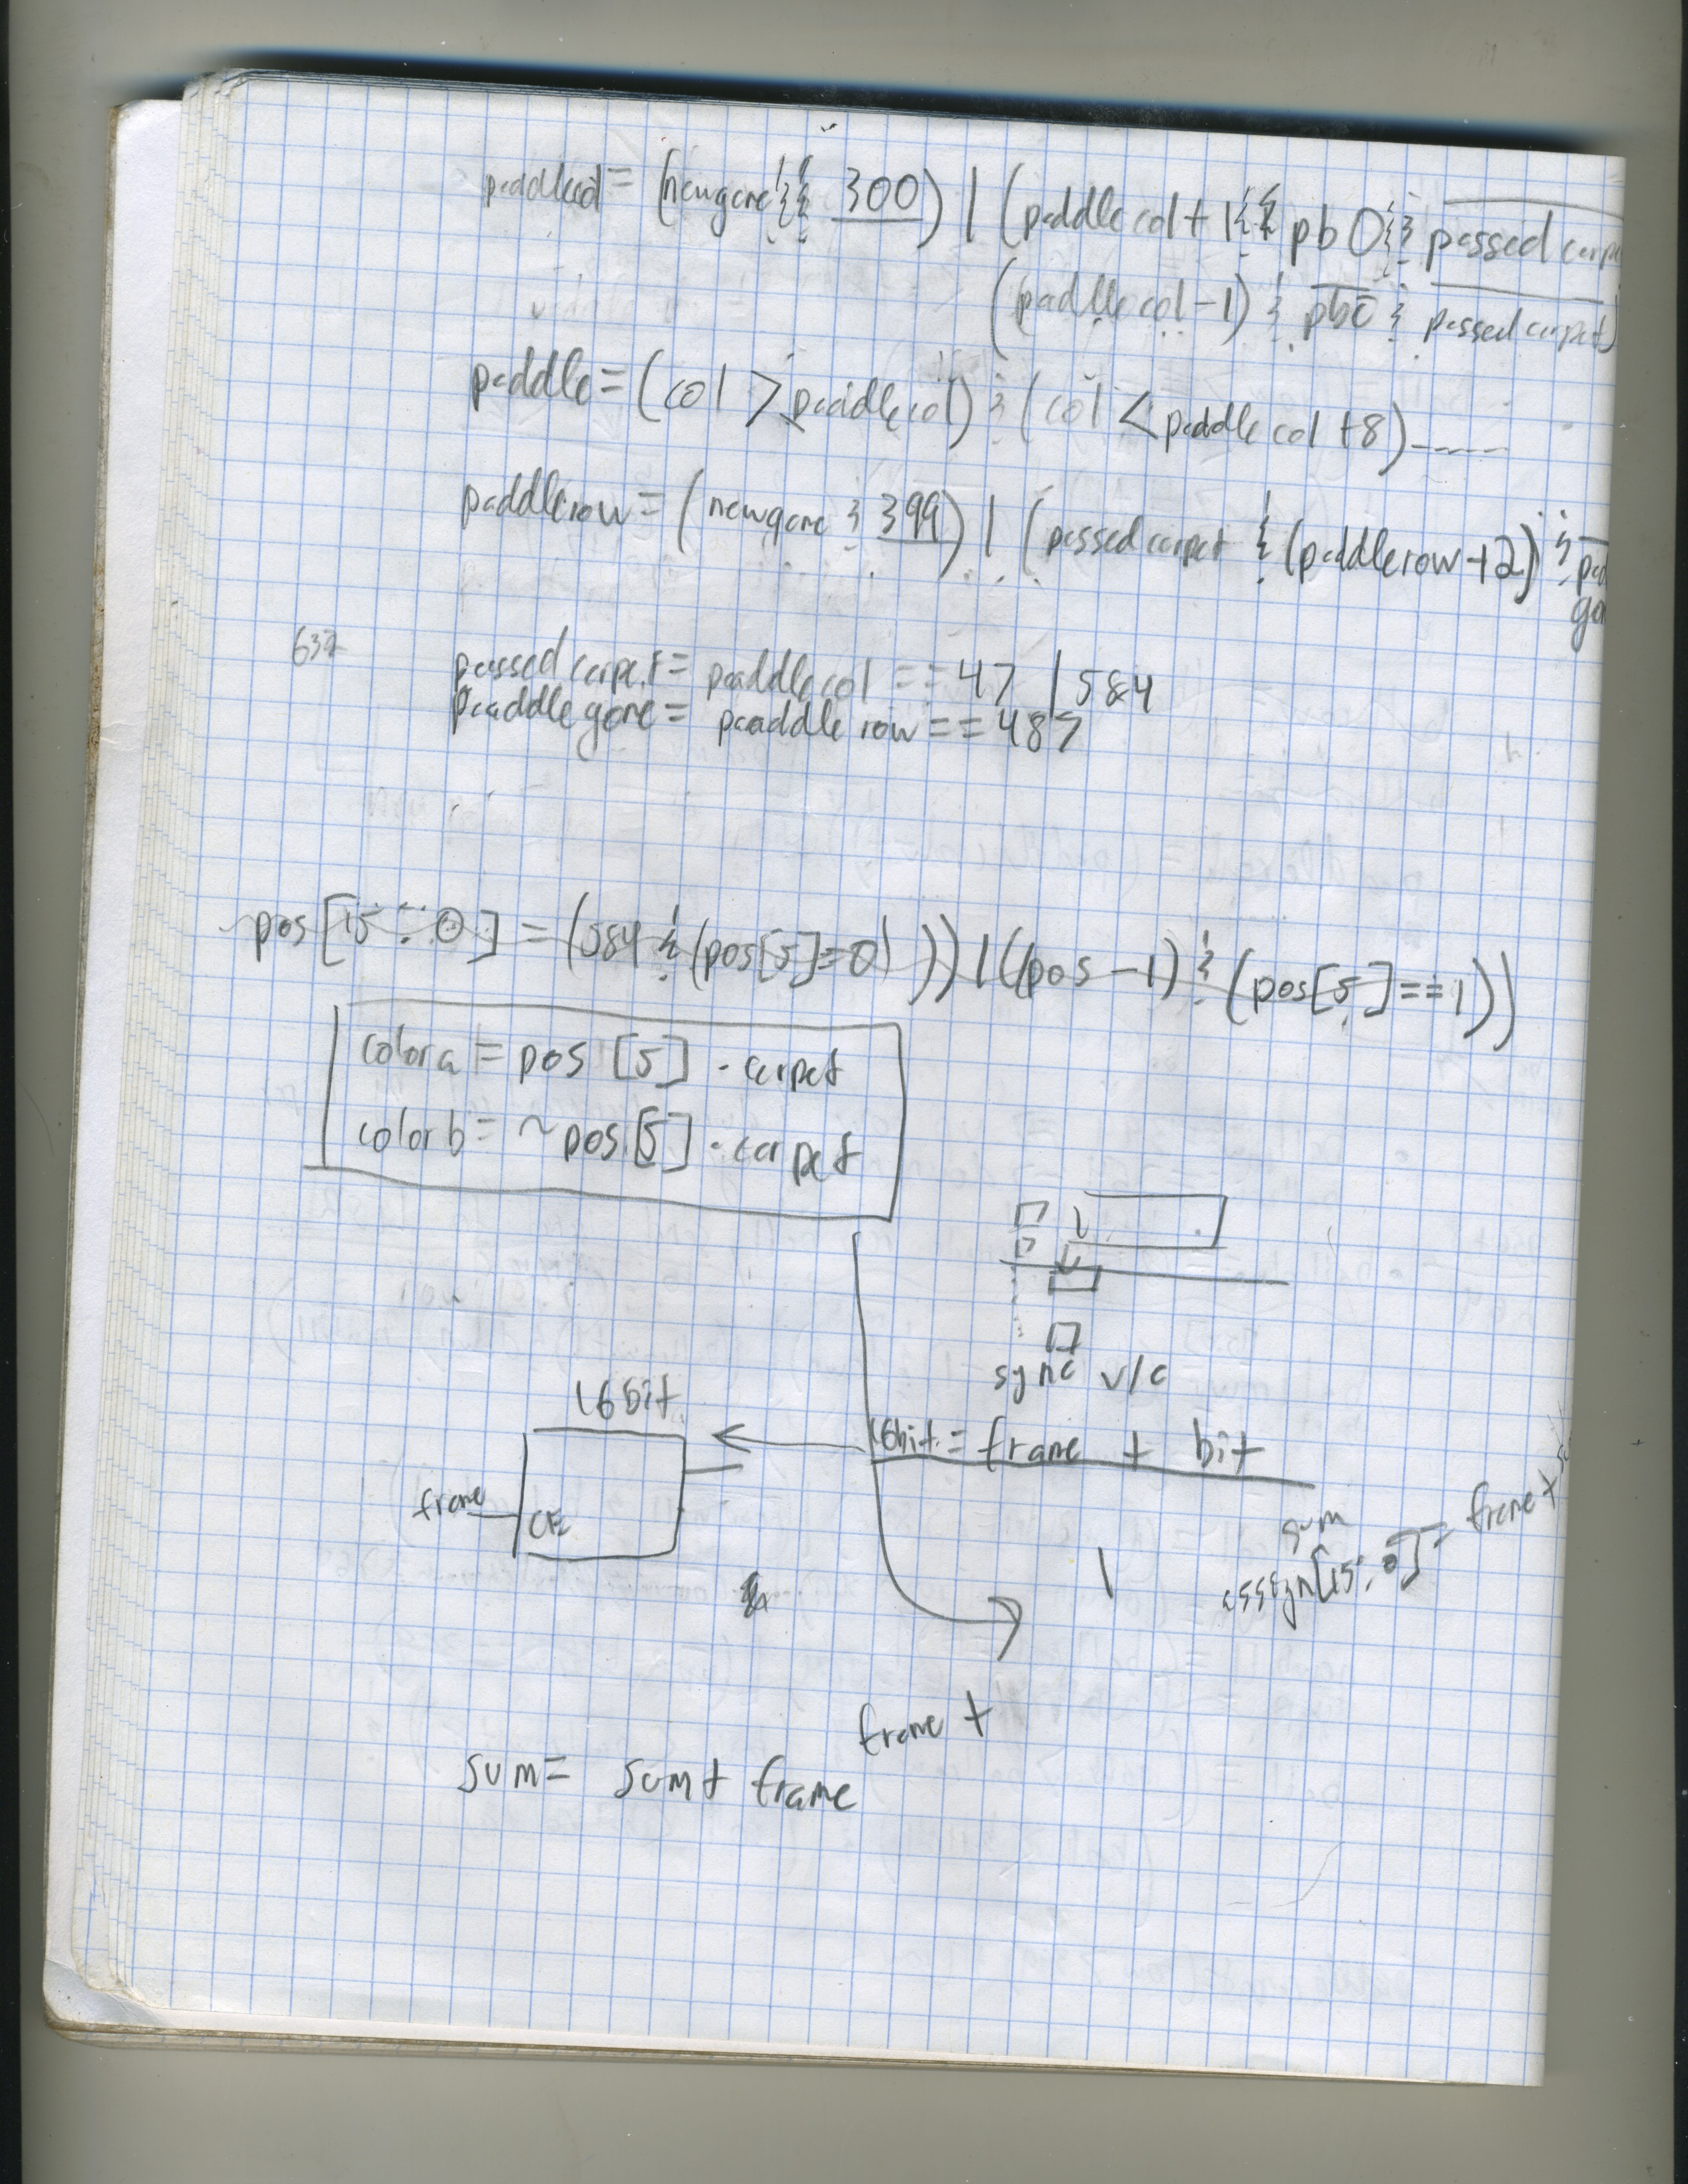 paddlecol = (newgame && 300) | (paddlecol + 1 && pb0 && passed carpe
(paddlecol - 1) & pb0 & passed carpet)
paddle = (col > paddlecol) & (col < paddlecol + 8) -----
paddlerow = (newgame & 399) | (passed carpet & (paddlerow + 2) & pad
gon
639
passed carpet = paddlecol == 47 | 584
Paddle gone = paddle row == 487
pos[15:0] = (584 & (pos[5]=0))) | ((pos - 1) & (pos[5]==1))
colora = pos [5] · carpet
colorb = ~pos[5] · carpet
sync v/c
16bit
16bit = frame + bit
frame
CE
sum
assign[15:0] = frame +
frame +
sum = sum + frame